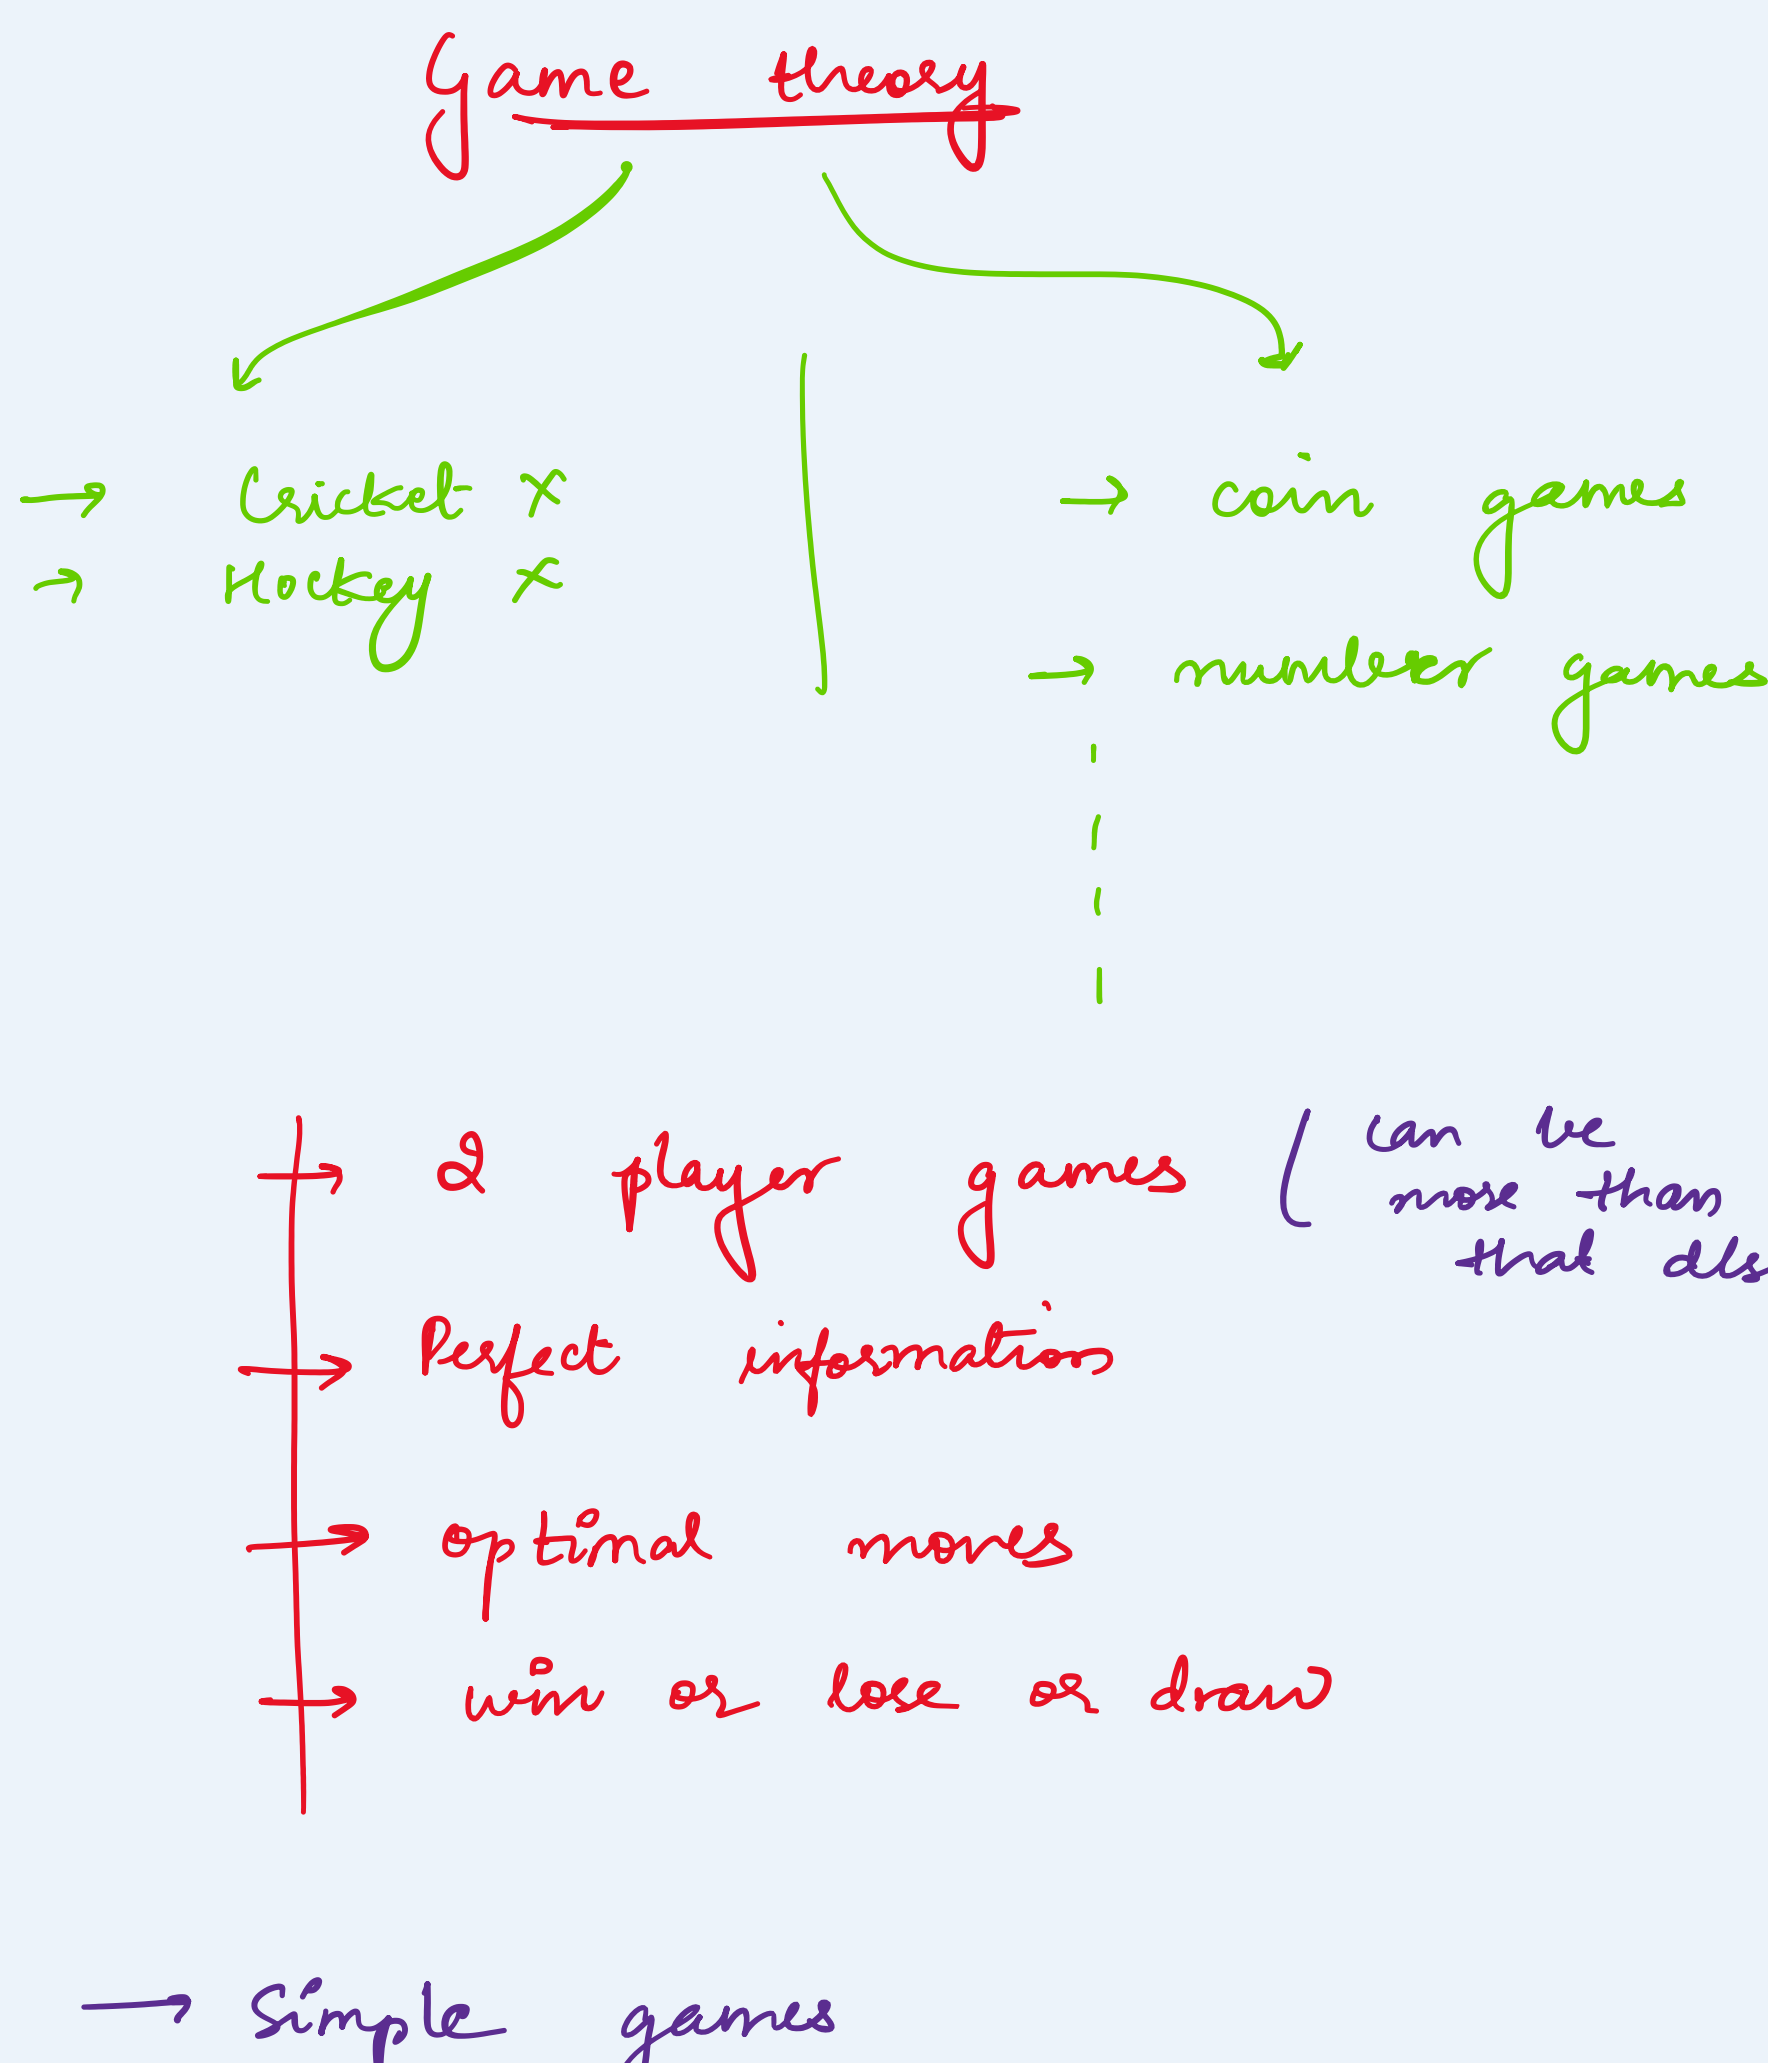 Game theory
→ Cricket ×
→ Hockey ×
→ coin games
→ number games
→ 2 player games ( can be
more than
that als
→ Perfect information
→ optimal moves
→ win or lose or draw
→ Simple games